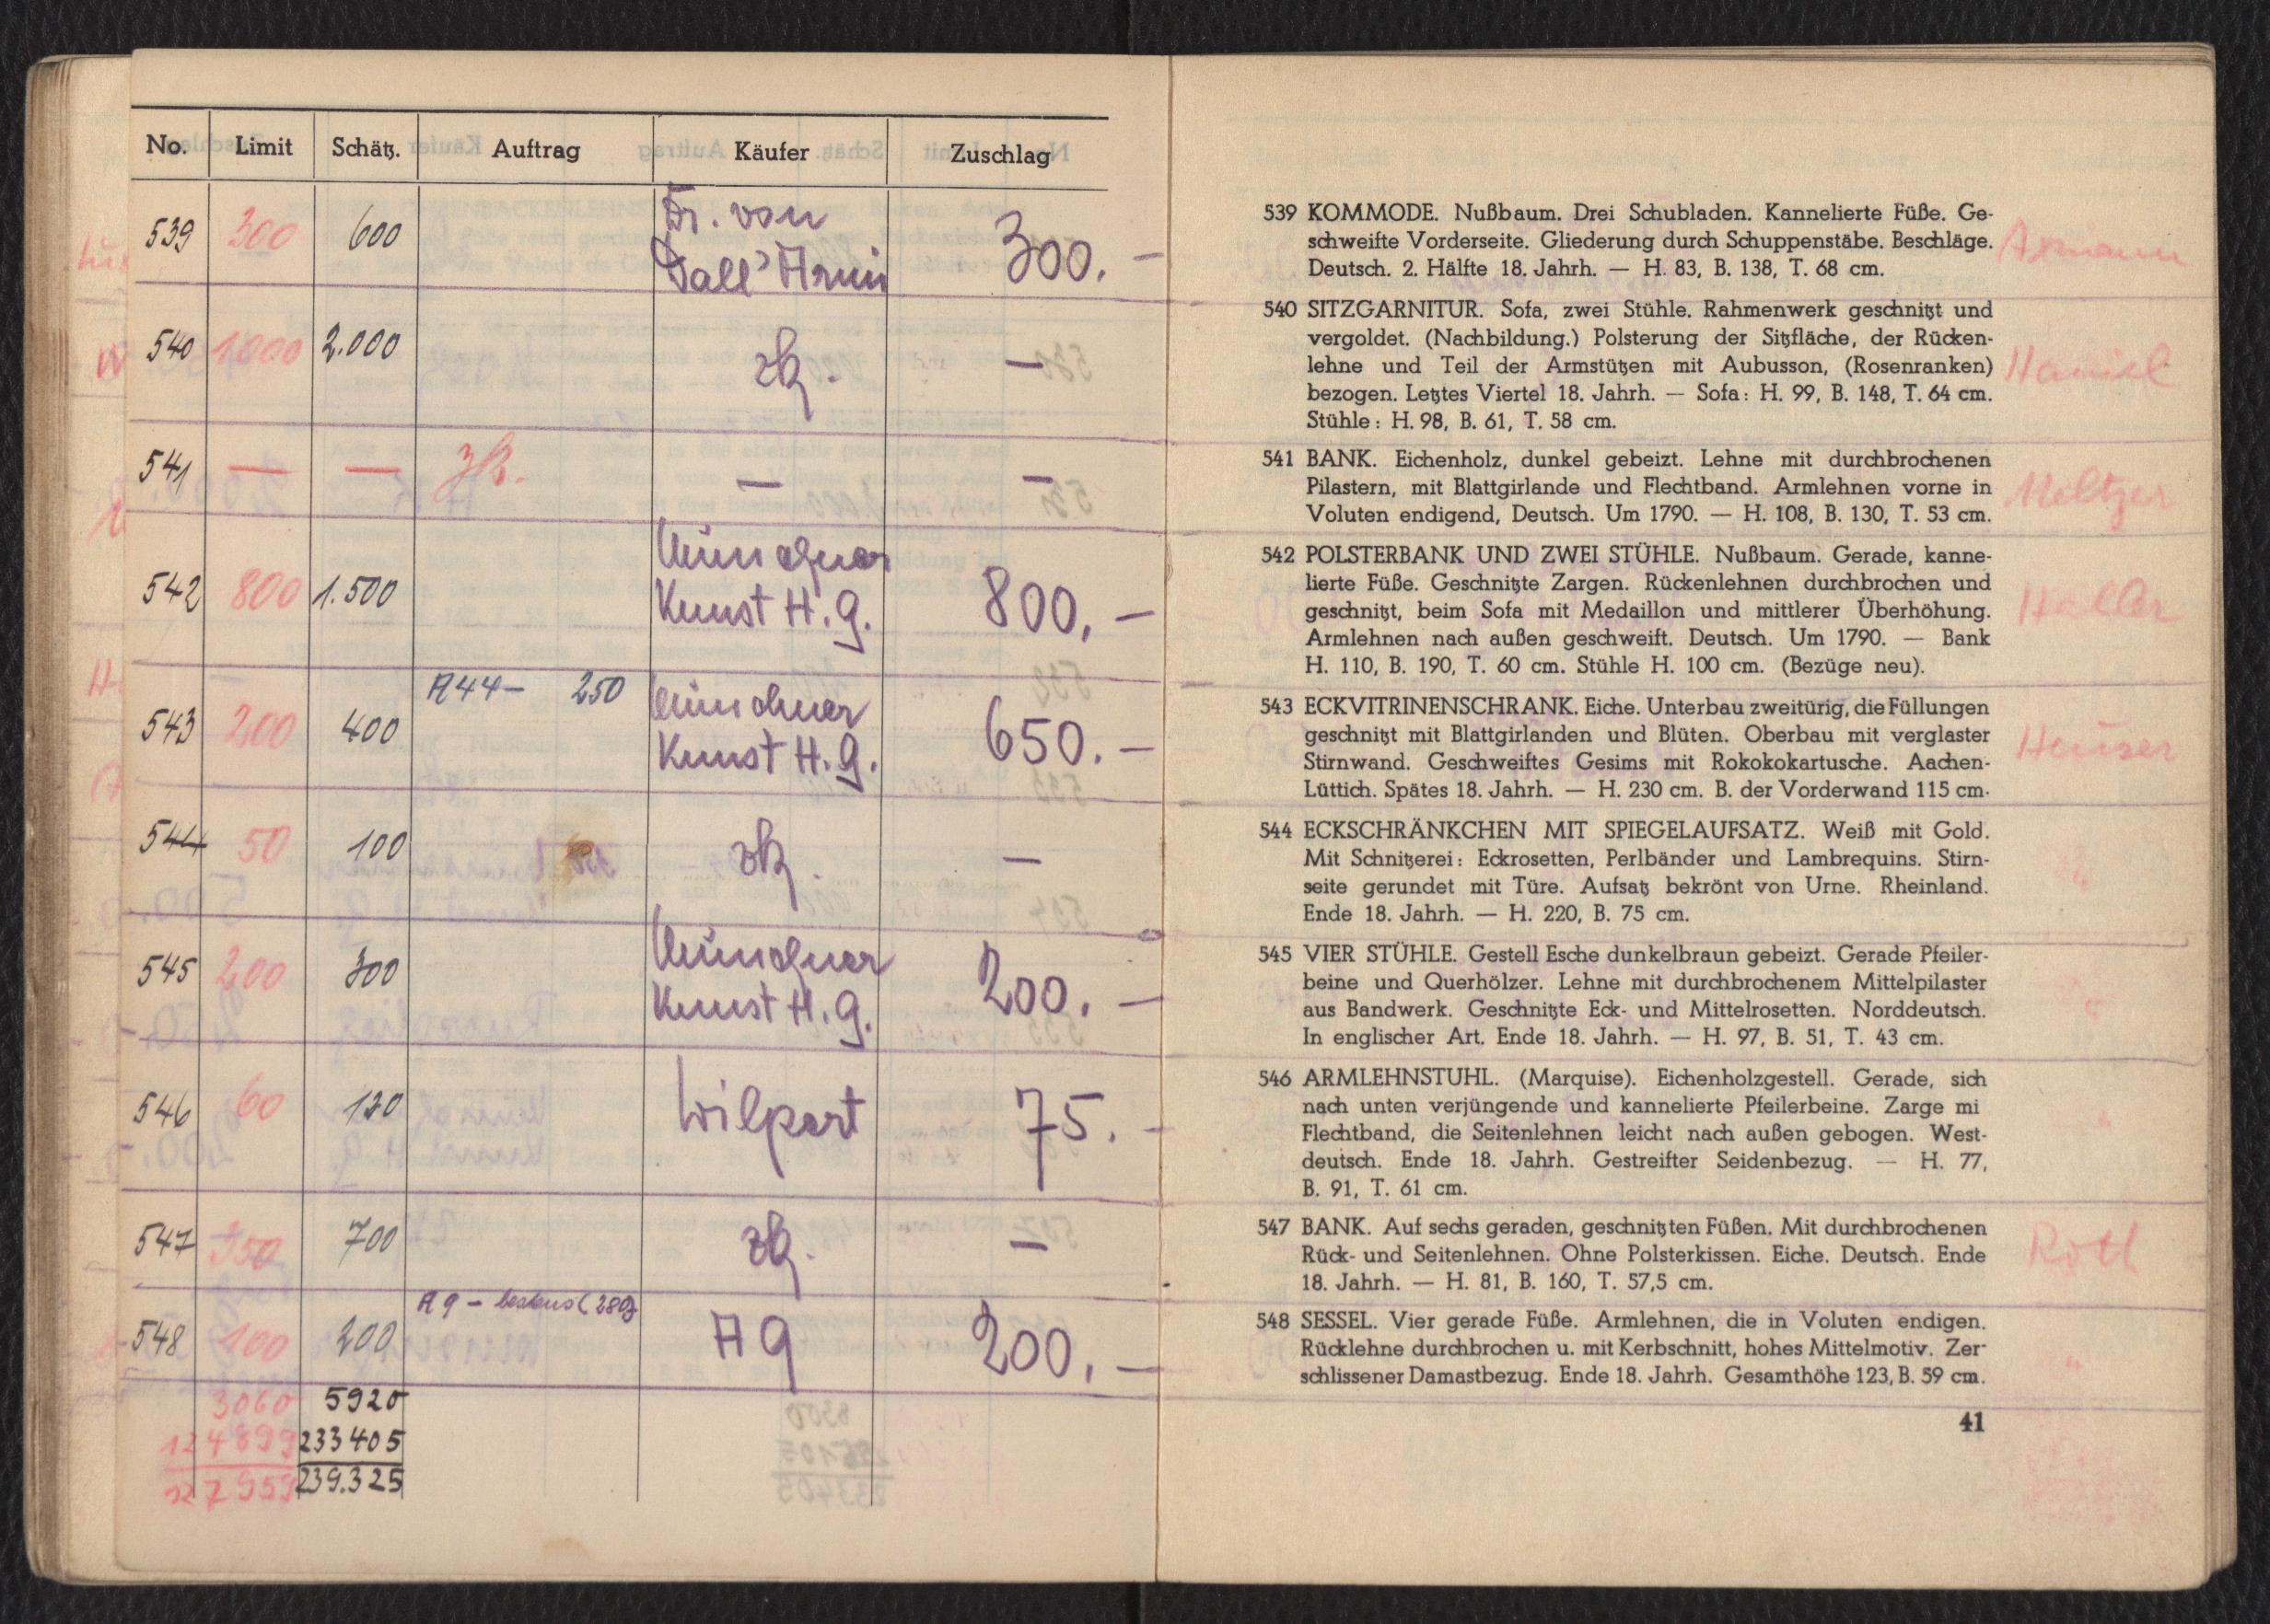 No. Limit Schätz. Auftrag Käufer Zuschlag
539 300 600 Dr. von Dall'Armi 300.—
540 1000 2.000 zk. —
541 — — zk. — —
542 800 1.500 Münchner Kunst H.g. 800,—
543 200 400 A44— 250 Münchner Kunst H.g. 650.—
544 50 100 zk. —
545 200 300 Münchner Kunst H.g. 200.—
546 60 120 Wilpert 75.—
547 350 700 zk. —
548 100 200 A9 — A9 200,—
3060 5920
124899 233405
127959 239.325
539 KOMMODE. Nußbaum. Drei Schubladen. Kannelierte Füße. Ge-
schweifte Vorderseite. Gliederung durch Schuppenstäbe. Beschläge.
Deutsch. 2. Hälfte 18. Jahrh. — H. 83, B. 138, T. 68 cm.
540 SITZGARNITUR. Sofa, zwei Stühle. Rahmenwerk geschnitzt und
vergoldet. (Nachbildung.) Polsterung der Sitzfläche, der Rücken-
lehne und Teil der Armstützen mit Aubusson, (Rosenranken)
bezogen. Letztes Viertel 18. Jahrh. — Sofa: H. 99, B. 148, T. 64 cm.
Stühle: H. 98, B. 61, T. 58 cm.
541 BANK. Eichenholz, dunkel gebeizt. Lehne mit durchbrochenen
Pilastern, mit Blattgirlande und Flechtband. Armlehnen vorne in
Meltzer
Voluten endigend, Deutsch. Um 1790. — H. 108, B. 130, T. 53 cm.
542 POLSTERBANK UND ZWEI STÜHLE. Nußbaum. Gerade, kanne-
lierte Füße. Geschnitzte Zargen. Rückenlehnen durchbrochen und
geschnitzt, beim Sofa mit Medaillon und mittlerer Überhöhung.
Haller
Armlehnen nach außen geschweift. Deutsch. Um 1790. — Bank
H. 110, B. 190, T. 60 cm. Stühle H. 100 cm. (Bezüge neu).
543 ECKVITRINENSCHRANK. Eiche. Unterbau zweitürig, die Füllungen
geschnitzt mit Blattgirlanden und Blüten. Oberbau mit verglaster
Heuser
Stirnwand. Geschweiftes Gesims mit Rokokokartusche. Aachen-
Lüttich. Spätes 18. Jahrh. — H. 230 cm. B. der Vorderwand 115 cm.
544 ECKSCHRÄNKCHEN MIT SPIEGELAUFSATZ. Weiß mit Gold.
Mit Schnitzerei: Eckrosetten, Perlbänder und Lambrequins. Stirn-
"
seite gerundet mit Türe. Aufsatz bekrönt von Urne. Rheinland.
Ende 18. Jahrh. — H. 220, B. 75 cm.
545 VIER STÜHLE. Gestell Esche dunkelbraun gebeizt. Gerade Pfeiler-
beine und Querhölzer. Lehne mit durchbrochenem Mittelpilaster
aus Bandwerk. Geschnitzte Eck- und Mittelrosetten. Norddeutsch.
"
In englischer Art. Ende 18. Jahrh. — H. 97, B. 51, T. 43 cm.
546 ARMLEHNSTUHL. (Marquise). Eichenholzgestell. Gerade, sich
nach unten verjüngende und kannelierte Pfeilerbeine. Zarge mi
"
Flechtband, die Seitenlehnen leicht nach außen gebogen. West-
deutsch. Ende 18. Jahrh. Gestreifter Seidenbezug. — H. 77,
B. 91, T. 61 cm.
547 BANK. Auf sechs geraden, geschnitzten Füßen. Mit durchbrochenen
Roth
Rück- und Seitenlehnen. Ohne Polsterkissen. Eiche. Deutsch. Ende
18. Jahrh. — H. 81, B. 160, T. 57,5 cm.
548 SESSEL. Vier gerade Füße. Armlehnen, die in Voluten endigen.
Rücklehne durchbrochen u. mit Kerbschnitt, hohes Mittelmotiv. Zer-
"
schlissener Damastbezug. Ende 18. Jahrh. Gesamthöhe 123, B. 59 cm.
41